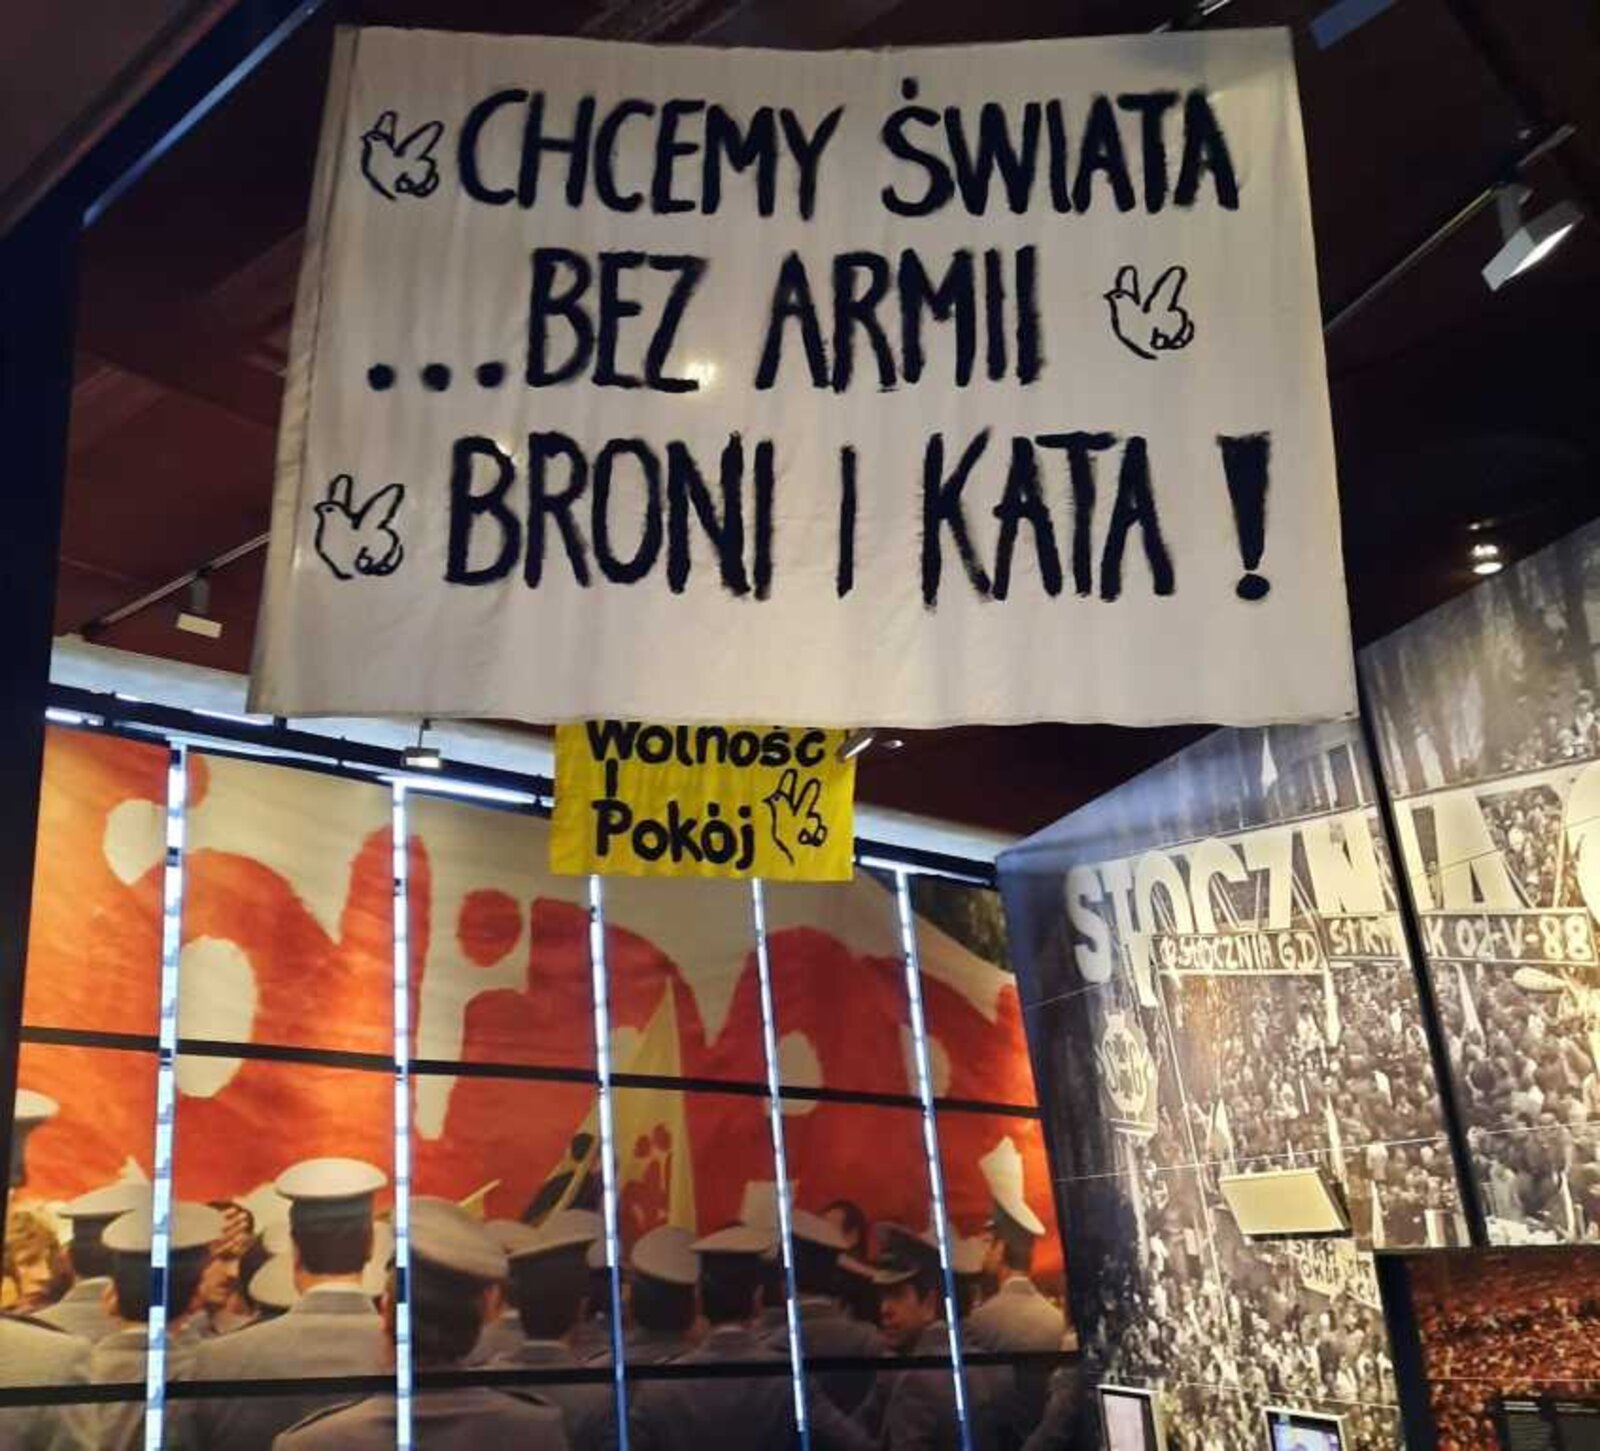 CHCEMY ŚWIATA
...BEZ ARMII
BRONI I KATA !
Wolność
i
Pokój
STOCZNIA
STOCZNIA GD
STRAJK 02-V-88